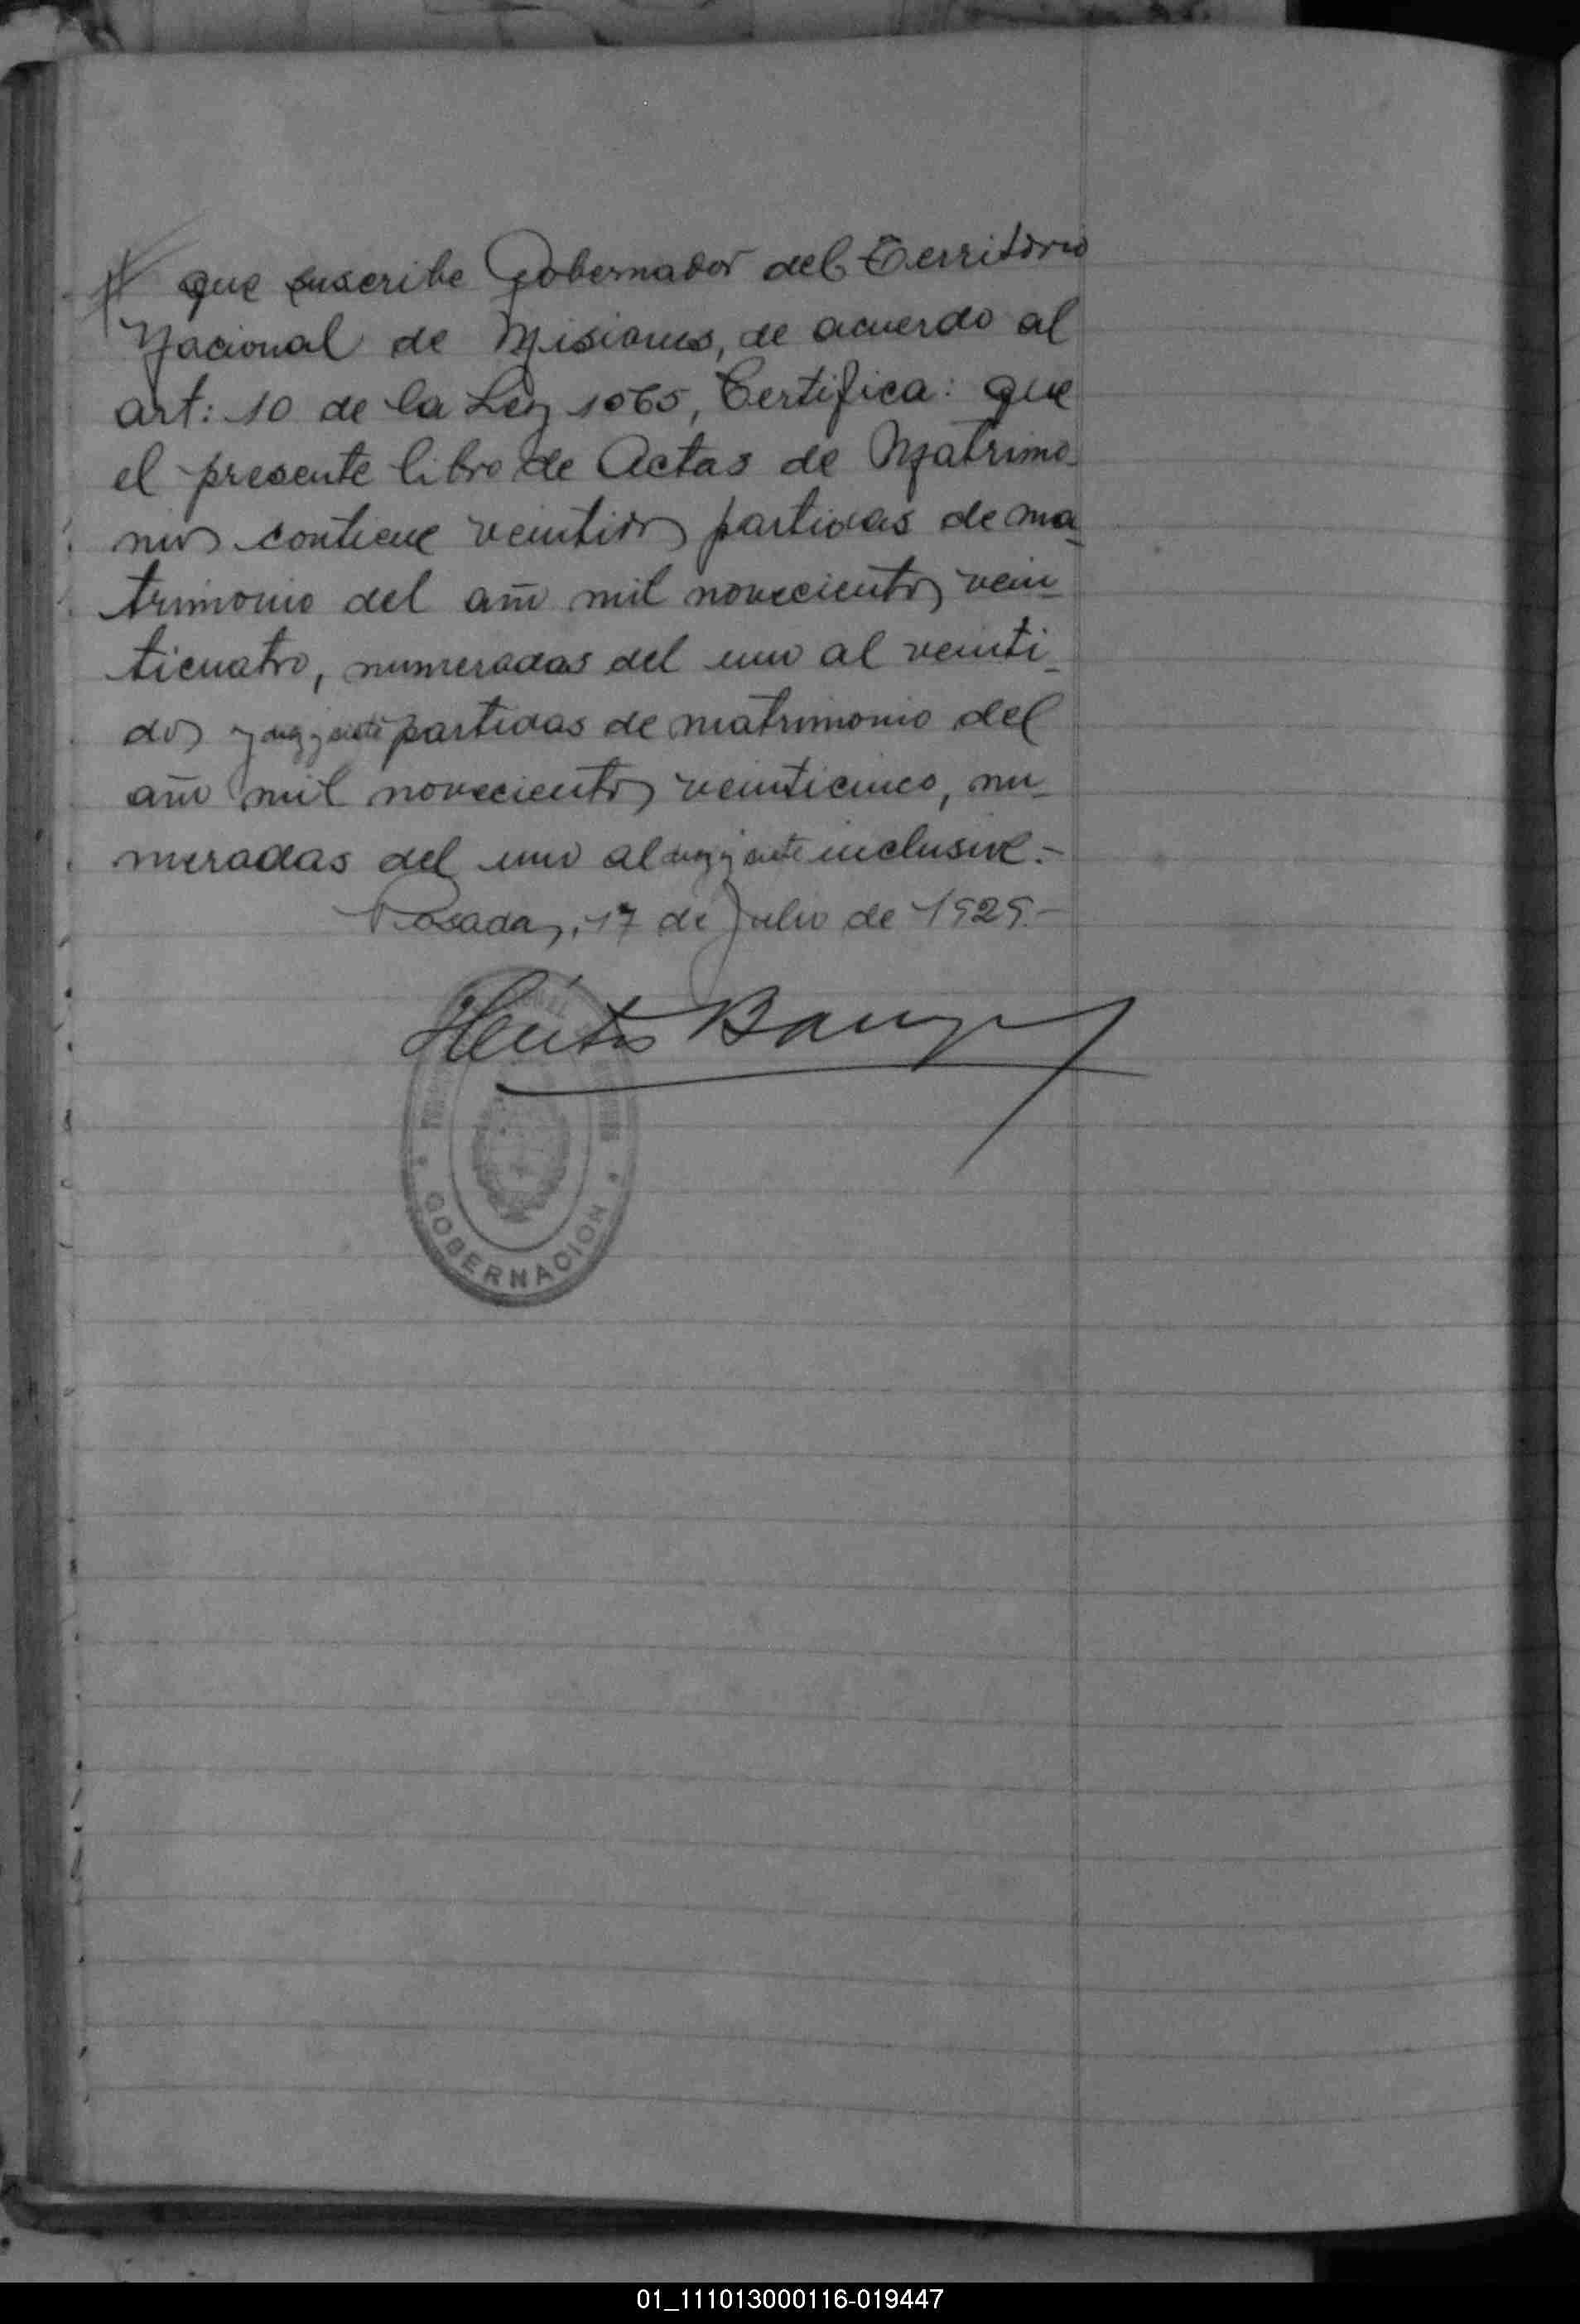 El que suscribe Gobernador del Territorio
Nacional de Misiones, de acuerdo al
art: 10 de la Ley 1565, Certifica: que
el presente libro de Actas de Matrimo-
nios contiene veintidos partidas de ma-
trimonio del año mil novecientos vein-
ticuatro, numeradas del uno al veinti-
dos y diez y siete partidas de matrimonio del
año mil novecientos veinticinco, nu-
meradas del uno al diez y siete inclusive.-
Posadas, 17 de Julio de 1925.-
GOBERNACION
01_111013000116-019447